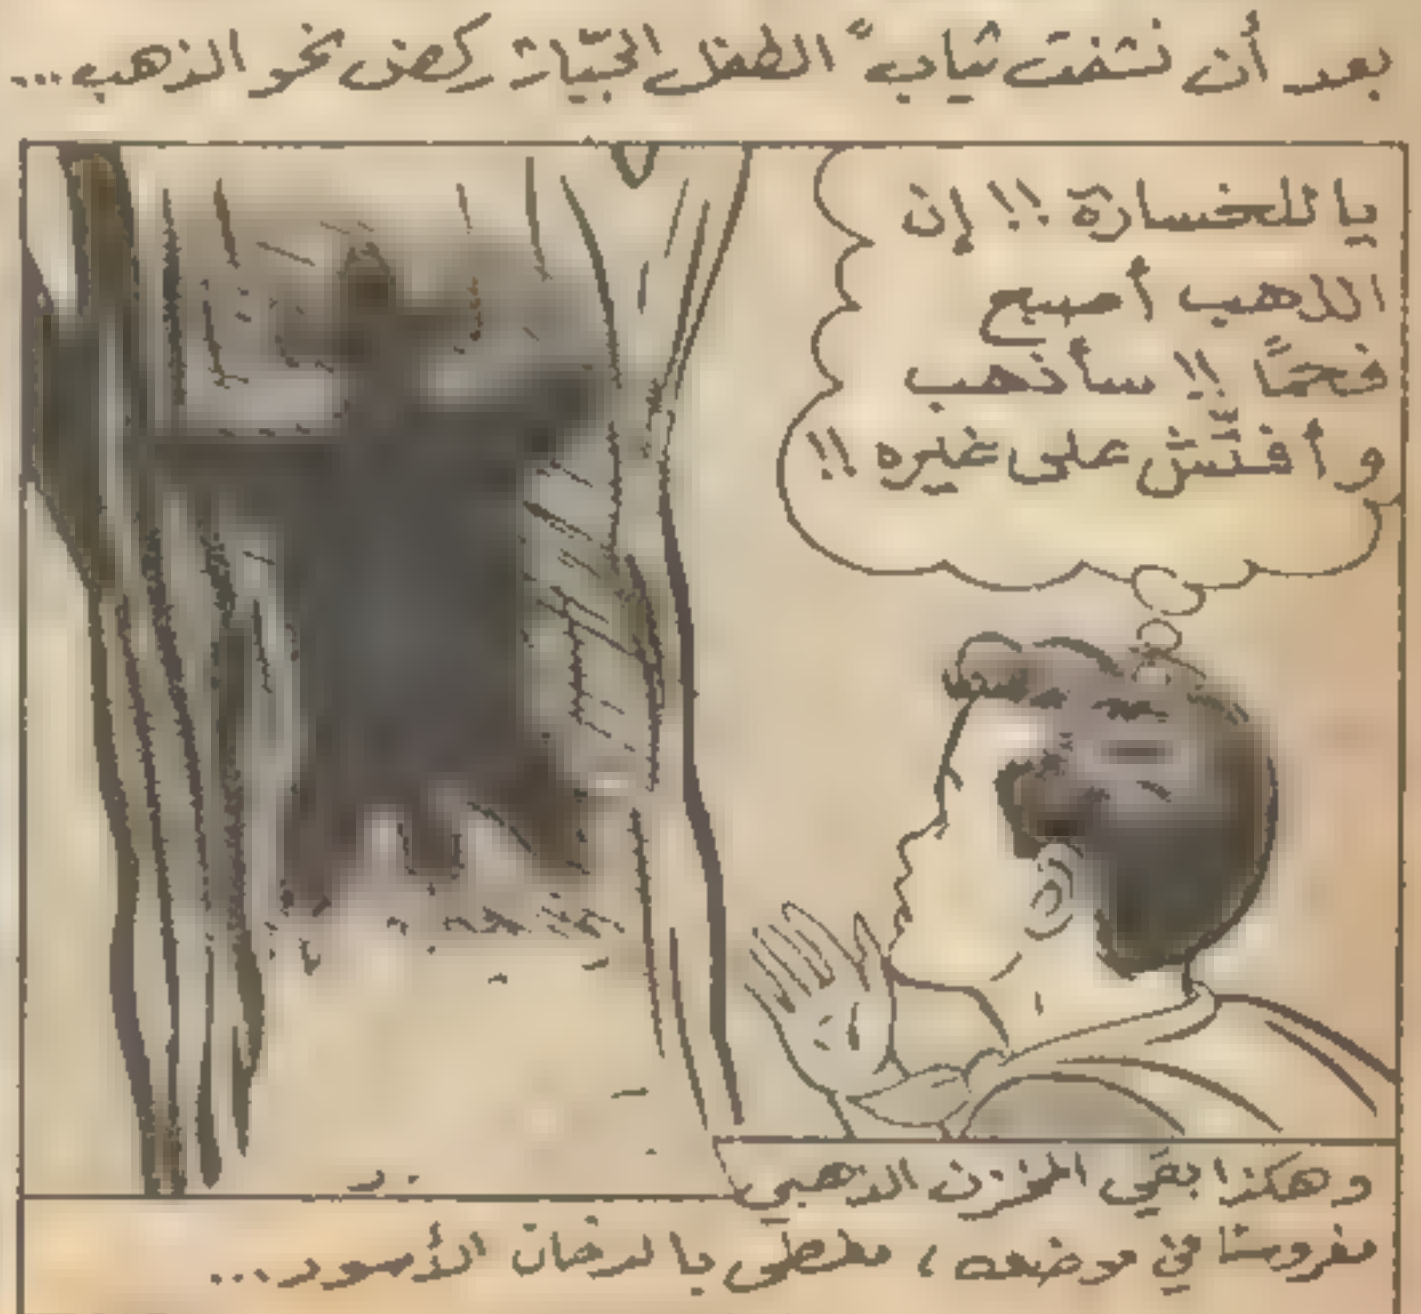 بعد أن نشفت ثياب الطفل الجبّار ركض نحو الذهب...
يا للخسارة !! إن
الذهب أصبح
فحمًا !! سأذهب
وأفتّش على غيره !!
وهكذا بقي المخزن الذهبي
مغروسًا في موضعه، مغطى بالدخان الأسود...